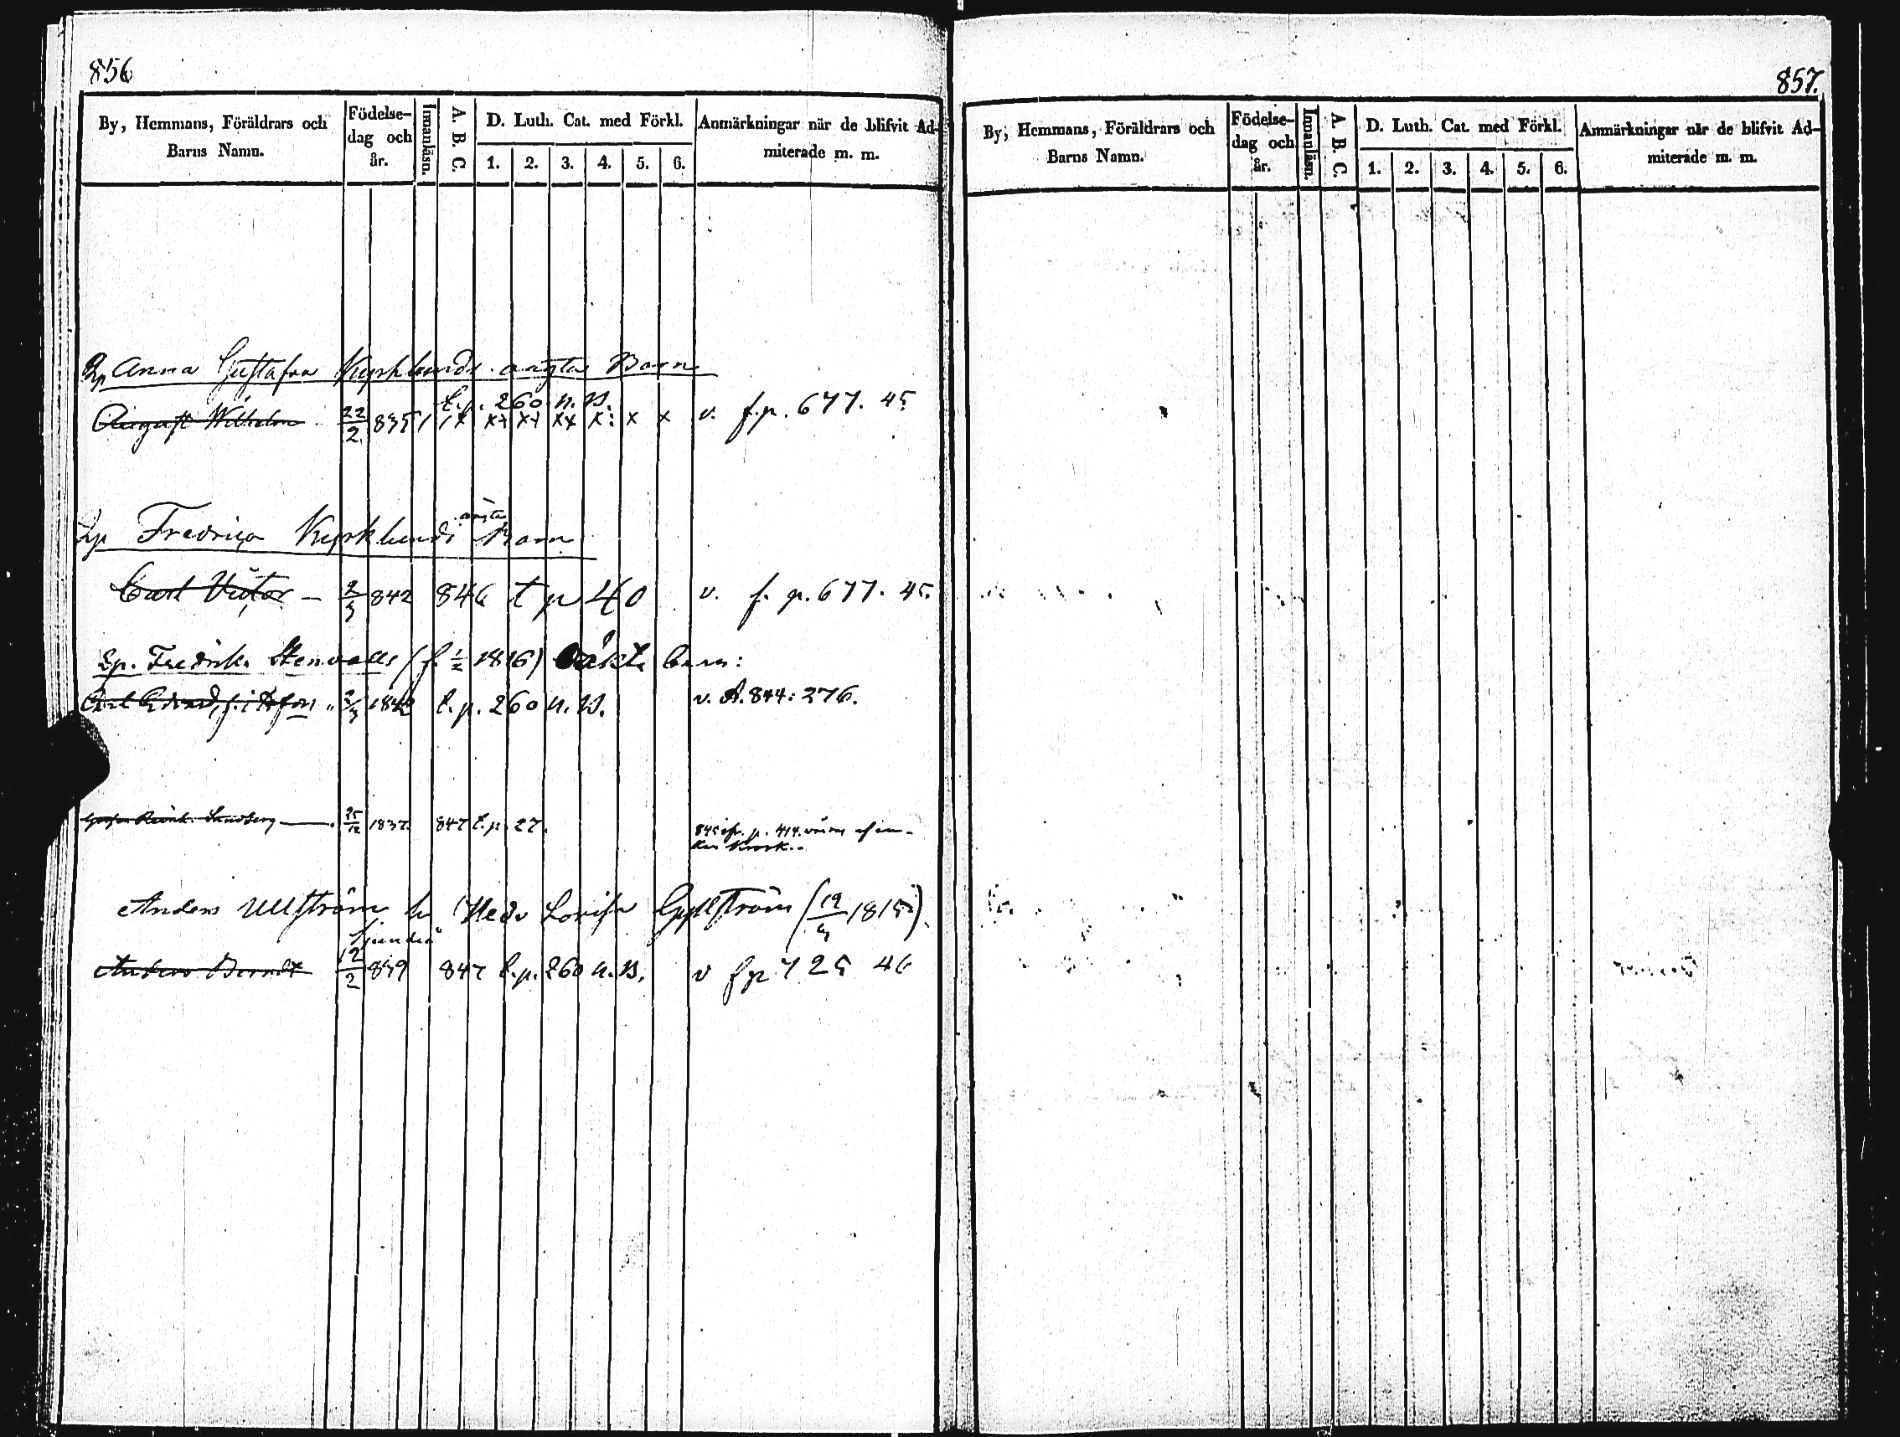 856
By, Hemmans, Föräldrars och Barns Namn.
Födelse-dag och år.
Innanläsn.
A. B. C.
D. Luth. Cat. med Förkl.
1. 2. 3. 4. 5. 6.
Anmärkningar när de blifvit Admiterade m. m.
Anna Gustafva Kyrklunds oägta Barn
t. p. 260 n. B.
August Wilhelm 22/2 835 v. f. p. 677. 45
oägta
Fredrica Kyrklunds Barn
Carl Victor – 2/3 842 846 t p 40 v. f. p. 677. 45.
Fredrika Stenvalls (f. 1/2 1816) oäkta barn:
Carl 1842 t. p. 260 n. B. v. A. 844: 276.
Sandberg 25/12 1837. 847 t. p. 27.
p. 414
Anders Ullström h Hedv Lovisa (19/ 1815).
Sjundeå
Anders Berndt 12/2 839 847 t. p. 260 n. B. v f p 725 46
857.
By, Hemmans, Föräldrars och Barns Namn.
Födelse-dag och år.
Innanläsn.
A. B. C.
D. Luth. Cat. med Förkl.
1. 2. 3. 4. 5. 6.
Anmärkningar när de blifvit Admiterade m. m.